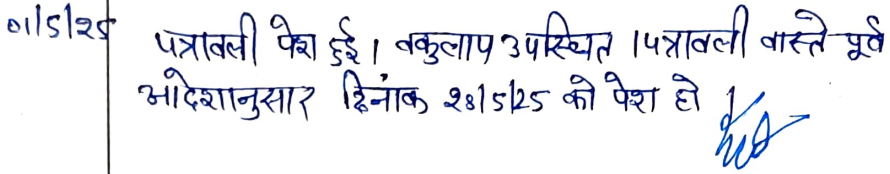 01/5/25
पत्रावली पेश हुई। वकुलाप उपस्थित। पत्रावली वास्ते पूर्व
आदेशानुसार दिनांक 28/5/25 को पेश हो।